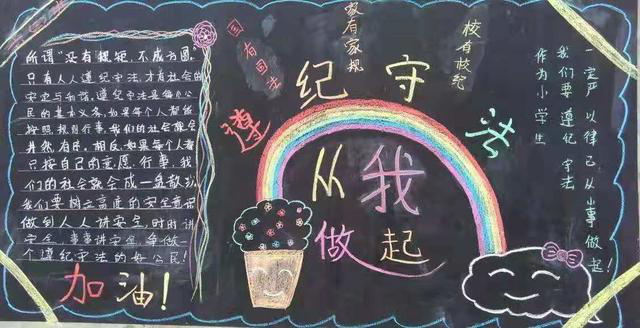 国有国法
家有家规
校有校纪
遵纪守法
从我
做起
所谓“没有规矩，不成方圆。
只有人人遵纪守法，才有社会的
安定与和谐。遵纪守法是每个公
民的基本义务，如果每个人都能
按照规则行事，我们的社会就会
井然有序。相反，如果每个人都
只按自己的意愿行事，我
们的社会就会成一盘散沙。
我们要树立高度的安全意识
做到人人讲安全，时时讲
安全，事事讲安全，争做一
个遵纪守法的好公民！
加油！
作为小学生
我们要遵纪守法
一定严以律己从小事做起！